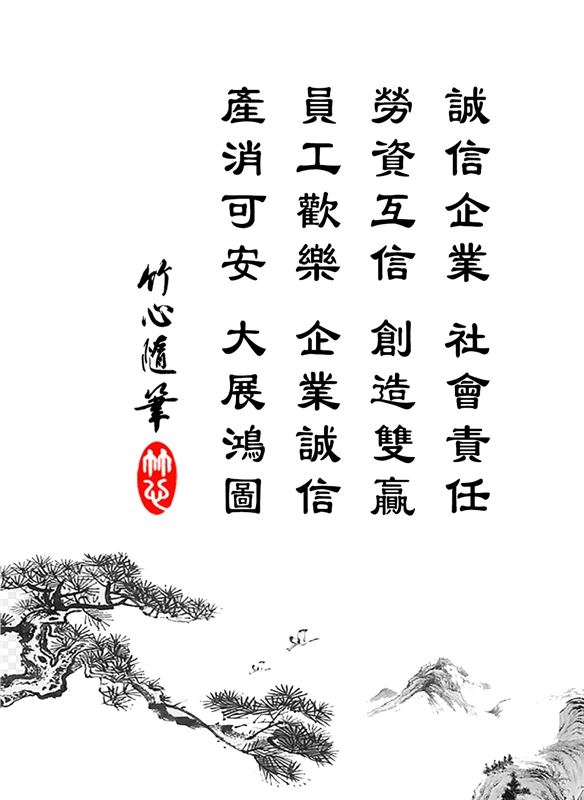 誠信企業 社會責任
勞資互信 創造雙贏
員工歡樂 企業誠信
產消可安 大展鴻圖
竹心隨筆
竹心